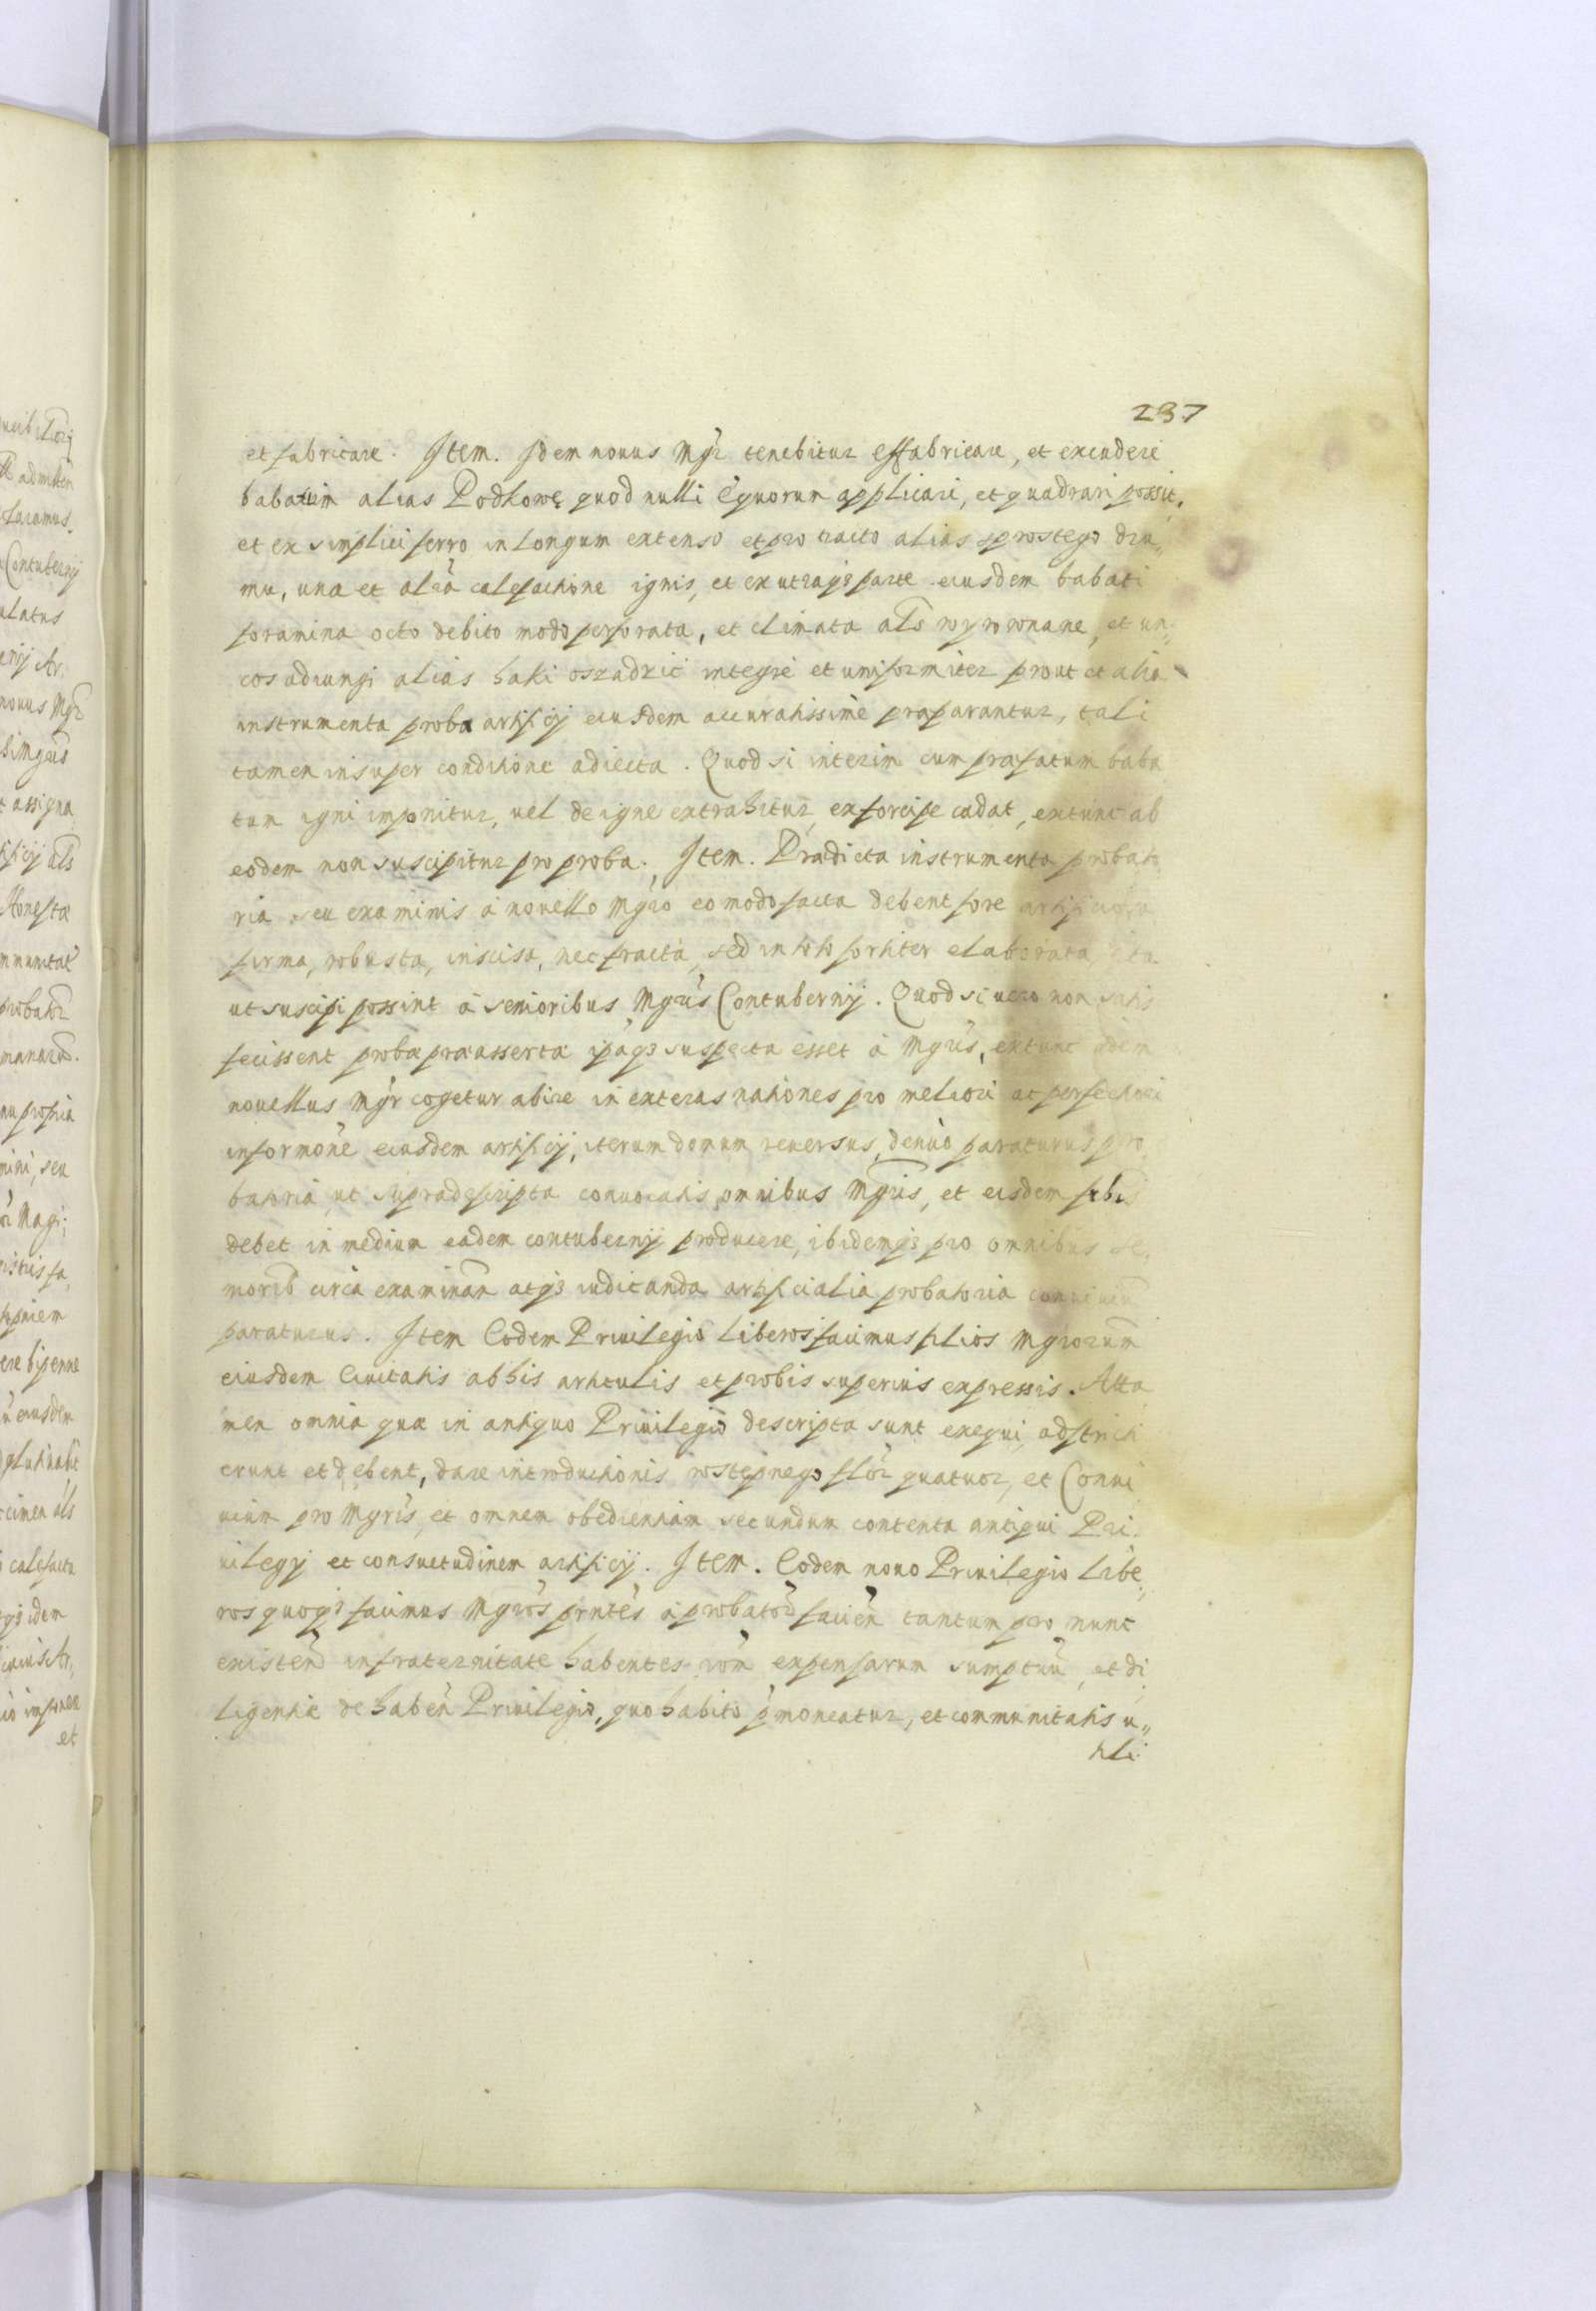 237
et fabricare. Item. Idem nouus Mgr tenebitur effabricare, et excudere
babatum alias Podkowę quod nulli equorum applicari, et quadrari possit,
et ex simplici ferro in longum extenso et pro tracto alias sprostego dru„
mu, una et alrã calefactione ignis, et ex utraq3 parte eiusdem babati
foramina octo debito modo perforata, et elimata als wyrownane, et un„
cos adiungi alias haki osradzić integre et uniformiter prout et alia
instrumenta proba artificij eiusdem accuratissime præparantur, tali
tamen insuper conditione adiecta. Quod si interim cum præfatum baba
tum igni imponitur, uel de igne extrahitur, ex forcipe cadat, extunc ab
eodem non suscipitur pro proba. Item. Prædicta instrumenta probato
ria seu examinis à nouello Mgro eo modo facta debent fore artificiosa
firma, robusta, inscisa, nec fracta, sed in toto fortiter elaborata, ita
ut suscipi possint à senioribus Mgris Contubernij. Quod si uero non satis
fecissent probæ præasserta ipaq3 suspecta esset à Mgris, extunc idem
nouellus Mgr cogetur abire in exteras nationes pro meliori ac perfectiori
informone eiusdem artificij, iterum domum reuersus, denuò paraturus pro
batoria ut supradescripta conuocatis omnibus Mgris, et eisdem
debet in medium eadem contubernij producere, ibidemq3 pro omnibus se„
niorib circa examinan atq3 iudicanda artificialia probatoria
paraturus. Item Eodem Priuilegio liberos facimus filios Mgrorum
eiusdem Ciuitatis ab his articulis et probis superius expressis. Atta
men omnia quæ in antiquo Priuilegio descripta sunt exequi, adstricti
erunt et debent, dare introductionis wstępnego flor quatuor, et Conui
uium pro Mgris, et omnem obedientiam secundum contenta antiqui Pri„
uilegij et consuetudinem artificij. Item. Eodem nouo Priuilegio libe„
ros quoq3 facimus Mgros prntes à probatori facien tantum pro nunc
existen in fraternitate habentes rõm expensarum sumptuũ, et di„
ligentiæ de haben Priuilegio, quo habito pmoneatur, et communitatis u„
tili